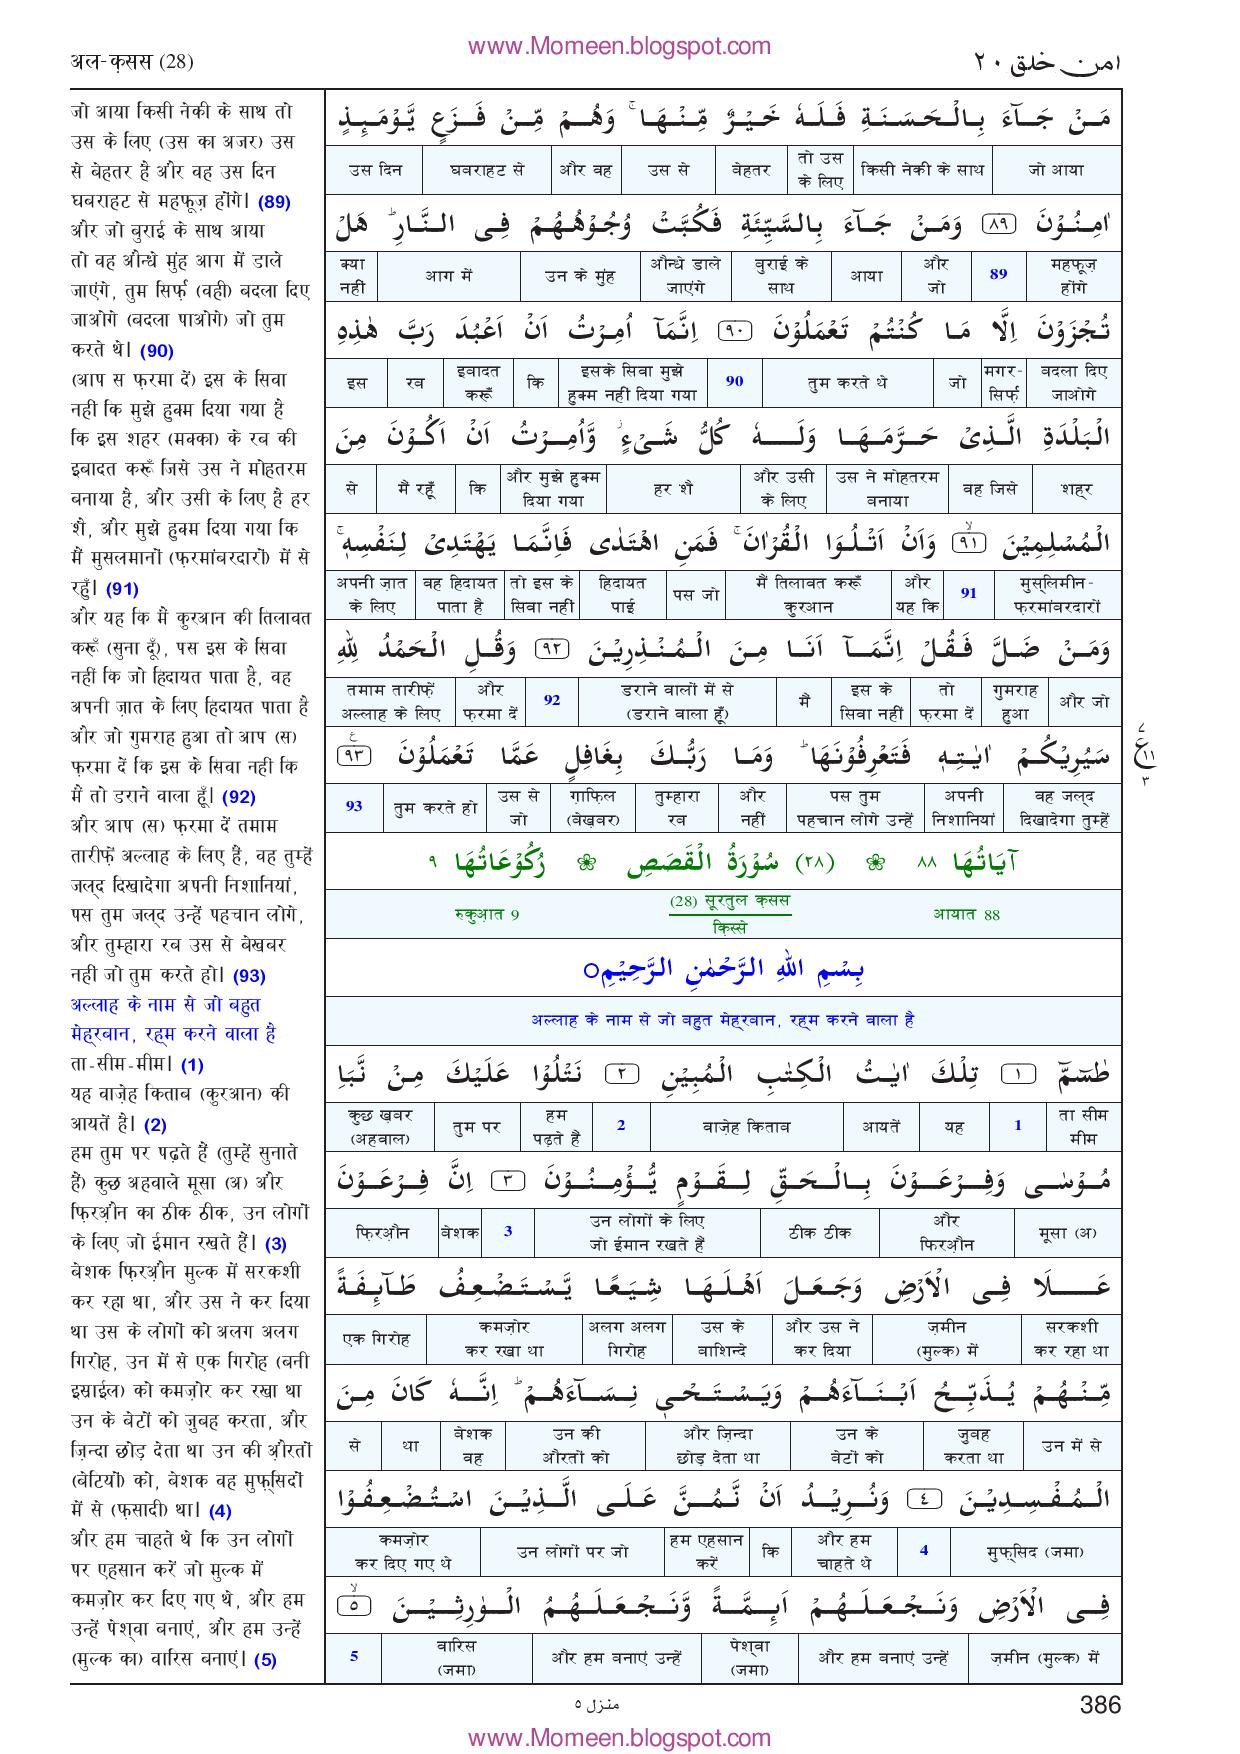 www.Momeen.blogspot.com
अल-क़सस (28)
امن خلق ٢٠
जो आया किसी नेकी के साथ तो
उस के लिए (उस का अजर) उस
से बेहतर है और वह उस दिन
घबराहट से महफ़ूज़ होंगे। (89)
और जो बुराई के साथ आया
तो वह औन्धे मुंह आग में डाले
जाएंगे, तुम सिर्फ़ (वही) बदला दिए
जाओगे (बदला पाओगे) जो तुम
करते थे। (90)
(आप स फ़रमा दें) इस के सिवा
नही कि मुझे हुक्म दिया गया है
कि इस शहर (मक्का) के रब की
इबादत करूँ जिसे उस ने मोहतरम
बनाया है, और उसी के लिए है हर
शै, और मुझे हुक्म दिया गया कि
मैं मुसलमानों (फ़रमांबरदारों) में से
रहूँ। (91)
और यह कि मैं कुरआन की तिलावत
करूँ (सुना दूँ), पस इस के सिवा
नहीं कि जो हिदायत पाता है, वह
अपनी ज़ात के लिए हिदायत पाता है
और जो गुमराह हुआ तो आप (स)
फ़रमा दें कि इस के सिवा नही कि
मैं तो डराने वाला हूँ। (92)
और आप (स) फ़रमा दें तमाम
तारीफ़ें अल्लाह के लिए हैं, वह तुम्हें
जल्द दिखादेगा अपनी निशानियां,
पस तुम जल्द उन्हें पहचान लोगे,
और तुम्हारा रब उस से बेख़बर
नही जो तुम करते हो। (93)
अल्लाह के नाम से जो बहुत
मेह्रबान, रहम करने वाला है
ता-सीम-मीम। (1)
यह वाज़ेह किताब (कुरआन) की
आयतें हैं। (2)
हम तुम पर पढ़ते हैं (तुम्हें सुनाते
हैं) कुछ अहवाले मूसा (अ) और
फ़िरऔ़न का ठीक ठीक, उन लोगों
के लिए जो ईमान रखते हैं। (3)
बेशक फ़िरऔ़न मुल्क में सरकशी
कर रहा था, और उस ने कर दिया
था उस के लोगों को अलग अलग
गिरोह, उन में से एक गिरोह (बनी
इस्राईल) को कमज़ोर कर रखा था
उन के बेटों को ज़ुबह करता, और
ज़िन्दा छोड़ देता था उन की औ़रतों
(बेटियों) को, बेशक वह मुफ़्सिदों
में से (फ़सादी) था। (4)
और हम चाहते थे कि उन लोगों
पर एहसान करें जो मुल्क में
कमज़ोर कर दिए गए थे, और हम
उन्हें पेश्वा बनाएं, और हम उन्हें
(मुल्क का) वारिस बनाएं। (5)
مَنْ جَآءَ بِالْحَسَنَةِ فَلَهٗ خَيْرٌ مِّنْهَا ۚ وَهُمْ مِّنْ فَزَعٍ يَّوْمَئِذٍ
जो आया | किसी नेकी के साथ | तो उस के लिए | बेहतर | उस से | और वह | घबराहट से | उस दिन
اٰمِنُوْنَ ٨٩ وَمَنْ جَآءَ بِالسَّيِّئَةِ فَكُبَّتْ وُجُوْهُهُمْ فِى النَّارِ ؕ هَلْ
महफ़ूज़ होंगे | 89 | और जो | आया | बुराई के साथ | औन्धे डाले जाएंगे | उन के मुंह | आग में | क्या नही
تُجْزَوْنَ اِلَّا مَا كُنْتُمْ تَعْمَلُوْنَ ٩٠ اِنَّمَآ اُمِرْتُ اَنْ اَعْبُدَ رَبَّ هٰذِهِ
बदला दिए जाओगे | मगर-सिर्फ़ | जो | तुम करते थे | 90 | इसके सिवा मुझे हुक्म नहीं दिया गया | कि | इबादत करूँ | रब | इस
الْبَلْدَةِ الَّذِىْ حَرَّمَهَا وَلَهٗ كُلُّ شَىْءٍ ۫ وَّاُمِرْتُ اَنْ اَكُوْنَ مِنَ
शहर | वह जिसे | उस ने मोहतरम बनाया | और उसी के लिए | हर शै | और मुझे हुक्म दिया गया | कि | मैं रहूँ | से
الْمُسْلِمِيْنَ ٩١ وَاَنْ اَتْلُوَا الْقُرْاٰنَ ۚ فَمَنِ اهْتَدٰى فَاِنَّمَا يَهْتَدِىْ لِنَفْسِهٖ ۚ
मुस्लिमीन-फ़रमांबरदारों | 91 | और यह कि | मैं तिलावत करूँ कुरआन | पस जो | हिदायत पाई | तो इस के सिवा नहीं | वह हिदायत पाता है | अपनी ज़ात के लिए
وَمَنْ ضَلَّ فَقُلْ اِنَّمَآ اَنَا مِنَ الْمُنْذِرِيْنَ ٩٢ وَقُلِ الْحَمْدُ لِلّٰهِ
और जो | गुमराह हुआ | तो फ़रमा दें | इस के सिवा नहीं | मैं | डराने वालों में से (डराने वाला हूँ) | 92 | और फ़रमा दें | तमाम तारीफ़ें अल्लाह के लिए
سَيُرِيْكُمْ اٰيٰتِهٖ فَتَعْرِفُوْنَهَا ؕ وَمَا رَبُّكَ بِغَافِلٍ عَمَّا تَعْمَلُوْنَ ٩٣
ع ١١ ٣
वह जल्द दिखादेगा तुम्हें | अपनी निशानियां | पस तुम पहचान लोगे उन्हें | और नहीं | तुम्हारा रब | ग़ाफ़िल (बेख़बर) | उस से जो | तुम करते हो | 93
آيَاتُهَا ٨٨ ❀ (٢٨) سُوْرَةُ الْقَصَصِ ❀ رُكُوْعَاتُهَا ٩
आयात 88 | (28) सूरतुल क़सस किस्से | रुकुआ़त 9
بِسْمِ اللّٰهِ الرَّحْمٰنِ الرَّحِيْمِ○
अल्लाह के नाम से जो बहुत मेह्रबान, रहम करने वाला है
طٰسٓمّٓ ١ تِلْكَ اٰيٰتُ الْكِتٰبِ الْمُبِيْنِ ٢ نَتْلُوْا عَلَيْكَ مِنْ نَّبَاِ
ता सीम मीम | 1 | यह | आयतें | वाज़ेह किताब | 2 | हम पढ़ते हैं | तुम पर | कुछ ख़बर (अहवाल)
مُوْسٰى وَفِرْعَوْنَ بِالْحَقِّ لِقَوْمٍ يُّؤْمِنُوْنَ ٣ اِنَّ فِرْعَوْنَ
मूसा (अ) | और फिरऔ़न | ठीक ठीक | उन लोगों के लिए जो ईमान रखते हैं | 3 | बेशक | फ़िरऔ़न
عَلَا فِى الْاَرْضِ وَجَعَلَ اَهْلَهَا شِيَعًا يَّسْتَضْعِفُ طَآئِفَةً
सरकशी कर रहा था | ज़मीन (मुल्क) में | और उस ने कर दिया | उस के बाशिन्दे | अलग अलग गिरोह | कमज़ोर कर रखा था | एक गिरोह
مِّنْهُمْ يُذَبِّحُ اَبْنَآءَهُمْ وَيَسْتَحْىٖ نِسَآءَهُمْ ؕ اِنَّهٗ كَانَ مِنَ
उन में से | ज़ुबह करता था | उन के बेटों को | और ज़िन्दा छोड़ देता था | उन की औरतों को | बेशक वह | था | से
الْمُفْسِدِيْنَ ٤ وَنُرِيْدُ اَنْ نَّمُنَّ عَلَى الَّذِيْنَ اسْتُضْعِفُوْا
मुफ़्सिद (जमा) | 4 | और हम चाहते थे | कि | हम एहसान करें | उन लोगों पर जो | कमज़ोर कर दिए गए थे
فِى الْاَرْضِ وَنَجْعَلَهُمْ اَئِمَّةً وَّنَجْعَلَهُمُ الْوٰرِثِيْنَ ٥
ज़मीन (मुल्क) में | और हम बनाएं उन्हें | पेश्वा (जमा) | और हम बनाएं उन्हें | वारिस (जमा) | 5
منزل ٥
386
www.Momeen.blogspot.com